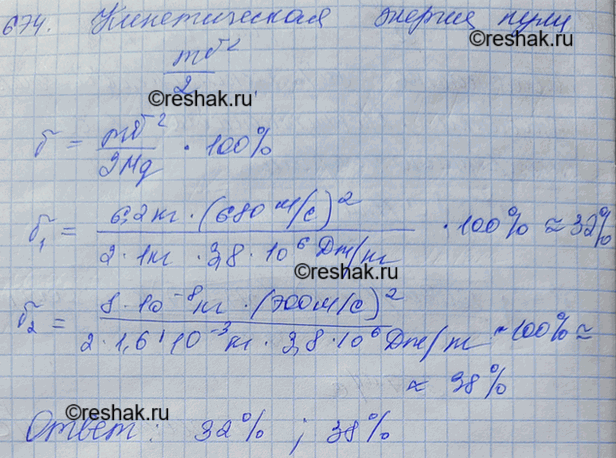 674. Кинетическая энергия пули
©reshak.ru
mv²/2
©reshak.ru
δ = mv²/2Mq · 100%
©reshak.ru
δ₁ = 6,2 кг · (680 м/с)² / 2 · 1кг · 3,8 · 10⁶ Дж/кг · 100% ≈ 32%
©reshak.ru
δ₂ = 8 · 10⁻⁸ кг · (700 м/с)² / 2 · 1,6 · 10⁻³ кг · 3,8 · 10⁶ Дж/кг · 100% ≈
≈ 38%
©reshak.ru
Ответ: 32% ; 38%
©reshak.ru